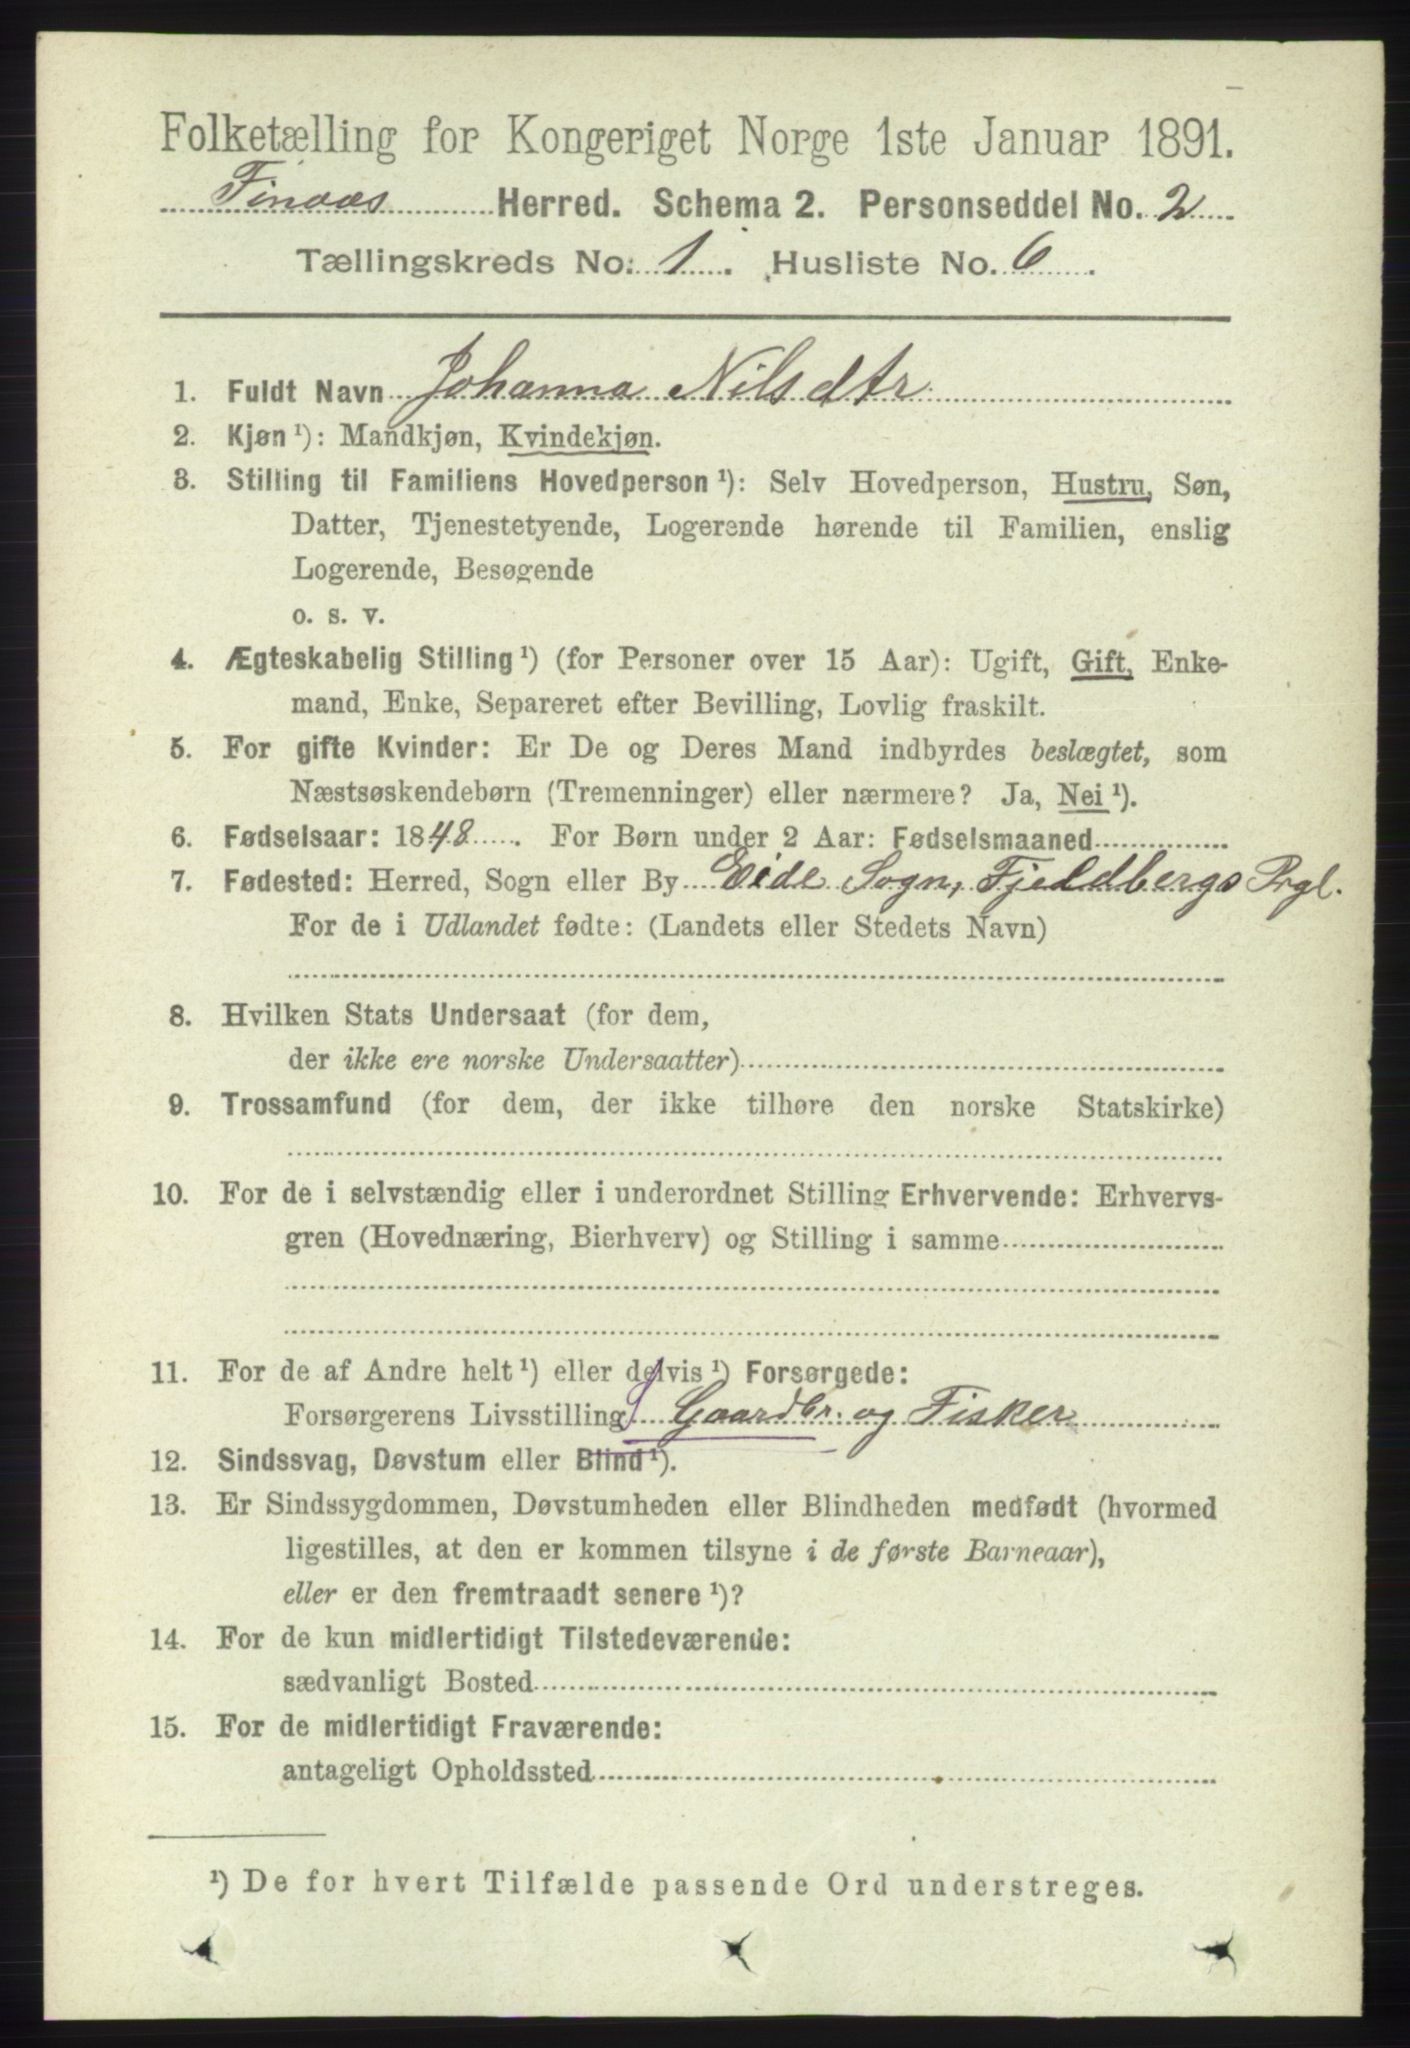 Folketælling for Kongeriget Norge 1ste Januar 1891.
Finaas Herred. Schema 2. Personseddel No. 2
Tællingskreds No. 1. Husliste No. 6.
1. Fuldt Navn Johanna Nilsdtr.
2. Kjøn¹): Mandkjøn, Kvindekjøn.
3. Stilling til Familiens Hovedperson¹): Selv Hovedperson, Hustru, Søn,
Datter, Tjenestetyende, Logerende hørende til Familien, enslig
Logerende, Besøgende
o. s. v.
4. Ægteskabelig Stilling¹) (for Personer over 15 Aar): Ugift, Gift, Enke-
mand, Enke, Separeret efter Bevilling, Lovlig fraskilt.
5. For gifte Kvinder: Er De og Deres Mand indbyrdes beslægtet, som
Næstsøskendebørn (Tremenninger) eller nærmere? Ja, Nei¹).
6. Fødselsaar: 1848. For Børn under 2 Aar: Fødselsmaaned
7. Fødested: Herred, Sogn eller By Eide Sogn, Fjeldbergs Prgl.
For de i Udlandet fødte: (Landets eller Stedets Navn)
8. Hvilken Stats Undersaat (for dem,
der ikke ere norske Undersaatter)
9. Trossamfund (for dem, der ikke tilhøre den norske Statskirke)
10. For de i selvstændig eller i underordnet Stilling Erhvervende: Erhvervs-
gren (Hovednæring, Bierhverv) og Stilling i samme
11. For de af Andre helt¹) eller delvis¹) Forsørgede:
Forsørgerens Livsstilling Gaardbr. og Fisker
12. Sindssvag, Døvstum eller Blind¹).
13. Er Sindssygdommen, Døvstumheden eller Blindheden medfødt (hvormed
ligestilles, at den er kommen tilsyne i de første Barneaar),
eller er den fremtraadt senere¹)?
14. For de kun midlertidigt Tilstedeværende:
sædvanligt Bosted
15. For de midlertidigt Fraværende:
antageligt Opholdssted
¹) De for hvert Tilfælde passende Ord understreges.